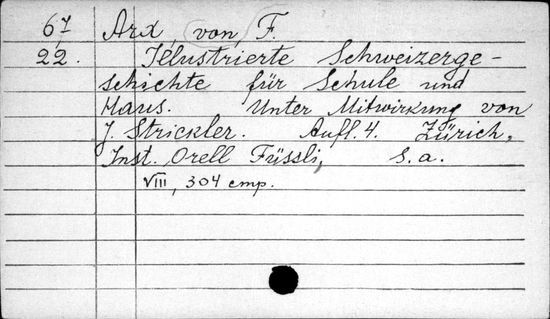 67 Arx, von F.
22. Illustrierte Schweizerge-
schichte für Schule und
Haus. Unter Mitwirkung von
J. Strickler. Aufl. 4. Zürich,
Inst. Orell Füssli, s.a.
VIII, 304 стр.